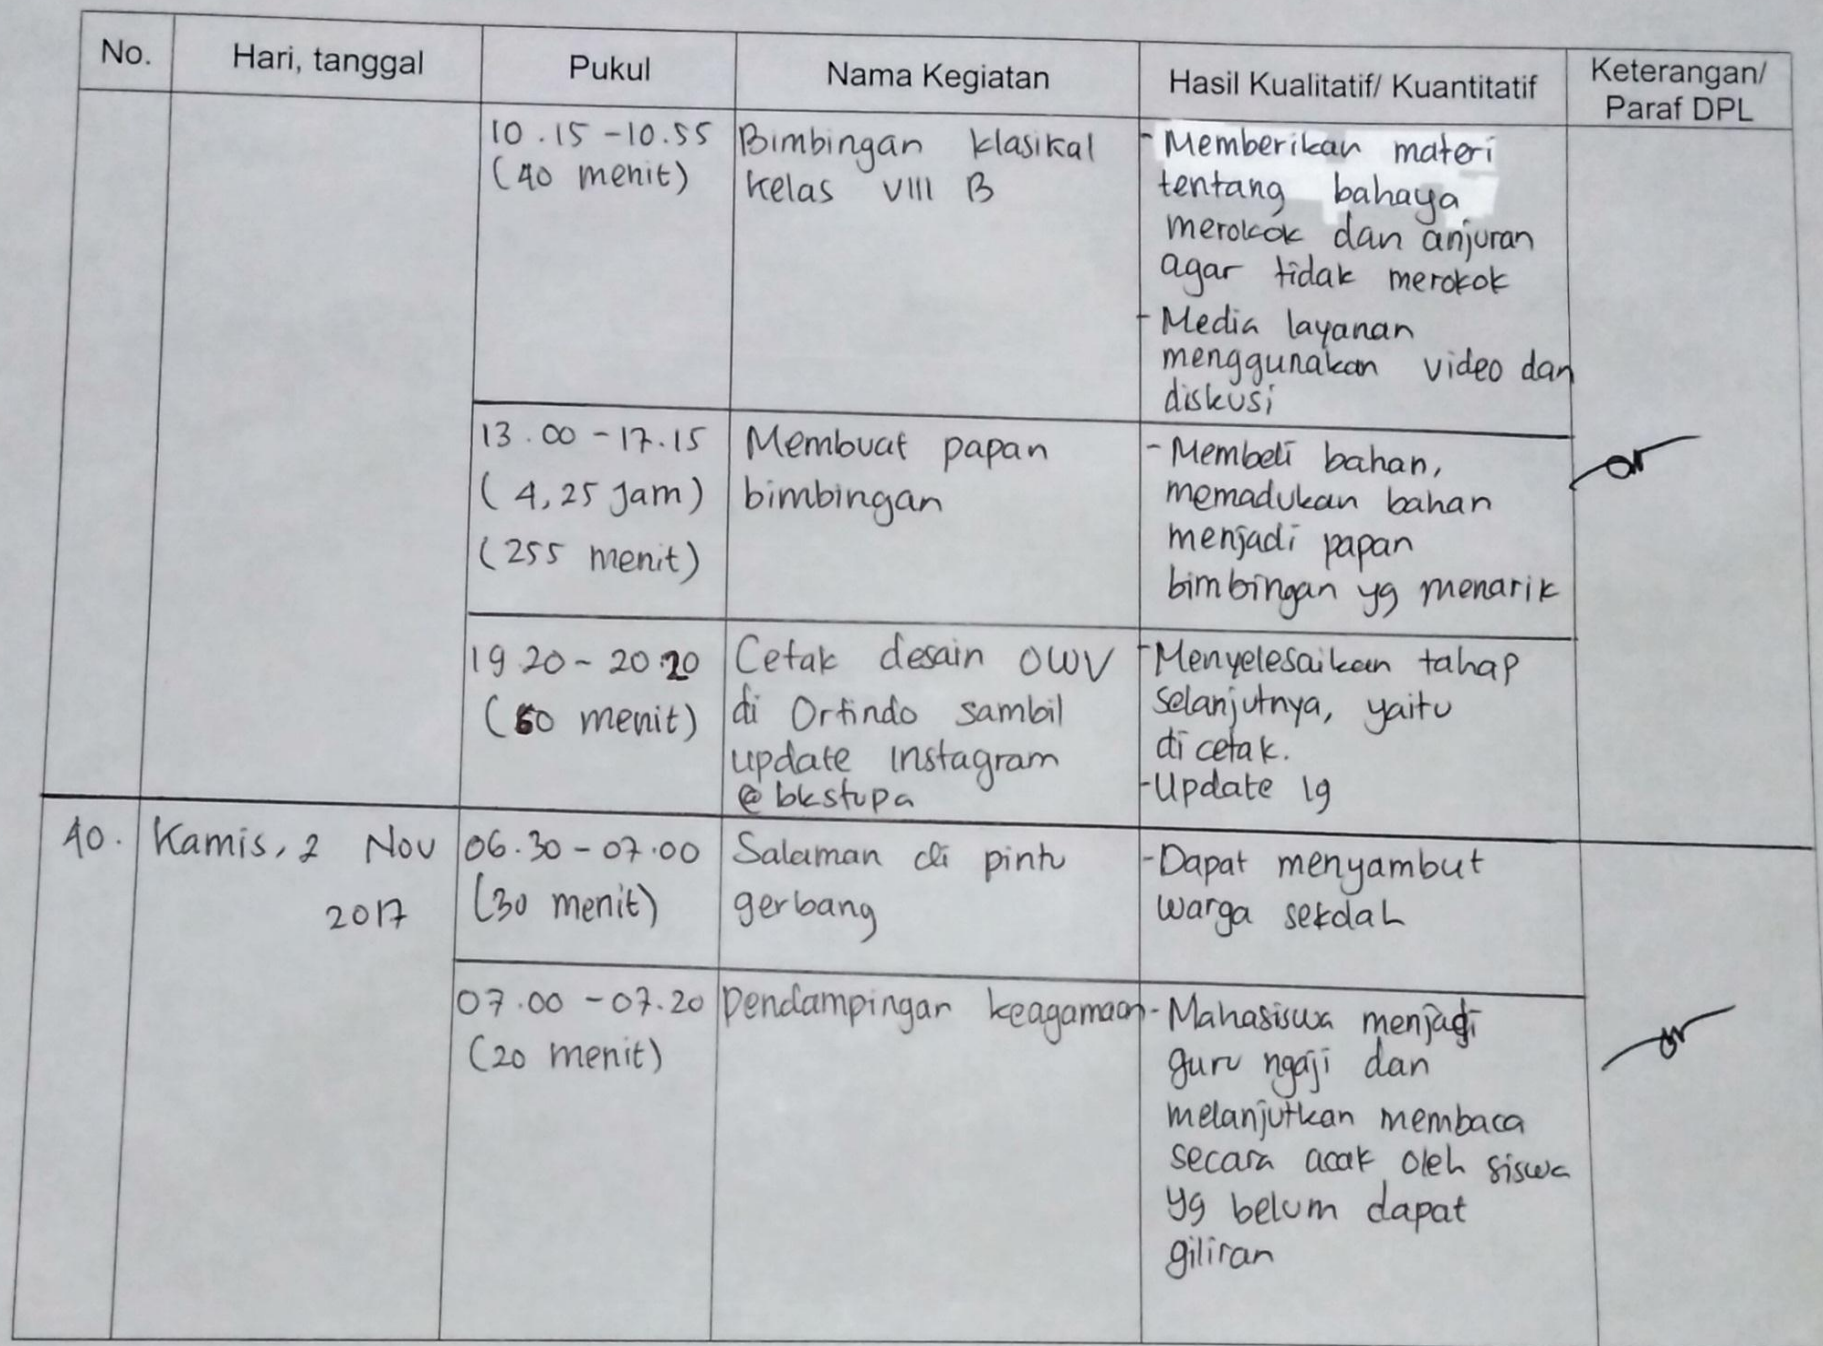 No.
Hari, tanggal
Pukul
Nama Kegiatan
Hasil Kualitatif/ Kuantitatif
Keterangan/
Paraf DPL
10.15 - 10.55
(40 menit)
Bimbingan klasikal
Kelas VIII B
- Memberikan materi
tentang bahaya
merokok dan anjuran
agar tidak merokok
- Media layanan
menggunakan video dan
diskusi
13.00 - 17.15
(4,25 Jam)
(255 menit)
Membuat papan
bimbingan
- Membeli bahan,
memadukan bahan
menjadi papan
bimbingan yg menarik
19.20 - 20.20
(60 menit)
Cetak desain OWV
di Orfindo sambil
update instagram
@bkstupa
- Menyelesaikan tahap
selanjutnya, yaitu
dicetak.
- Update Ig
40.
Kamis, 2 Nov
2017
06.30 - 07.00
(30 menit)
Salaman di pintu
gerbang
- Dapat menyambut
warga sekolah
07.00 - 07.20
(20 menit)
Pendampingan keagamaan
- Mahasiswa menjadi
guru ngaji dan
melanjutkan membaca
secara acak oleh siswa
yg belum dapat
giliran